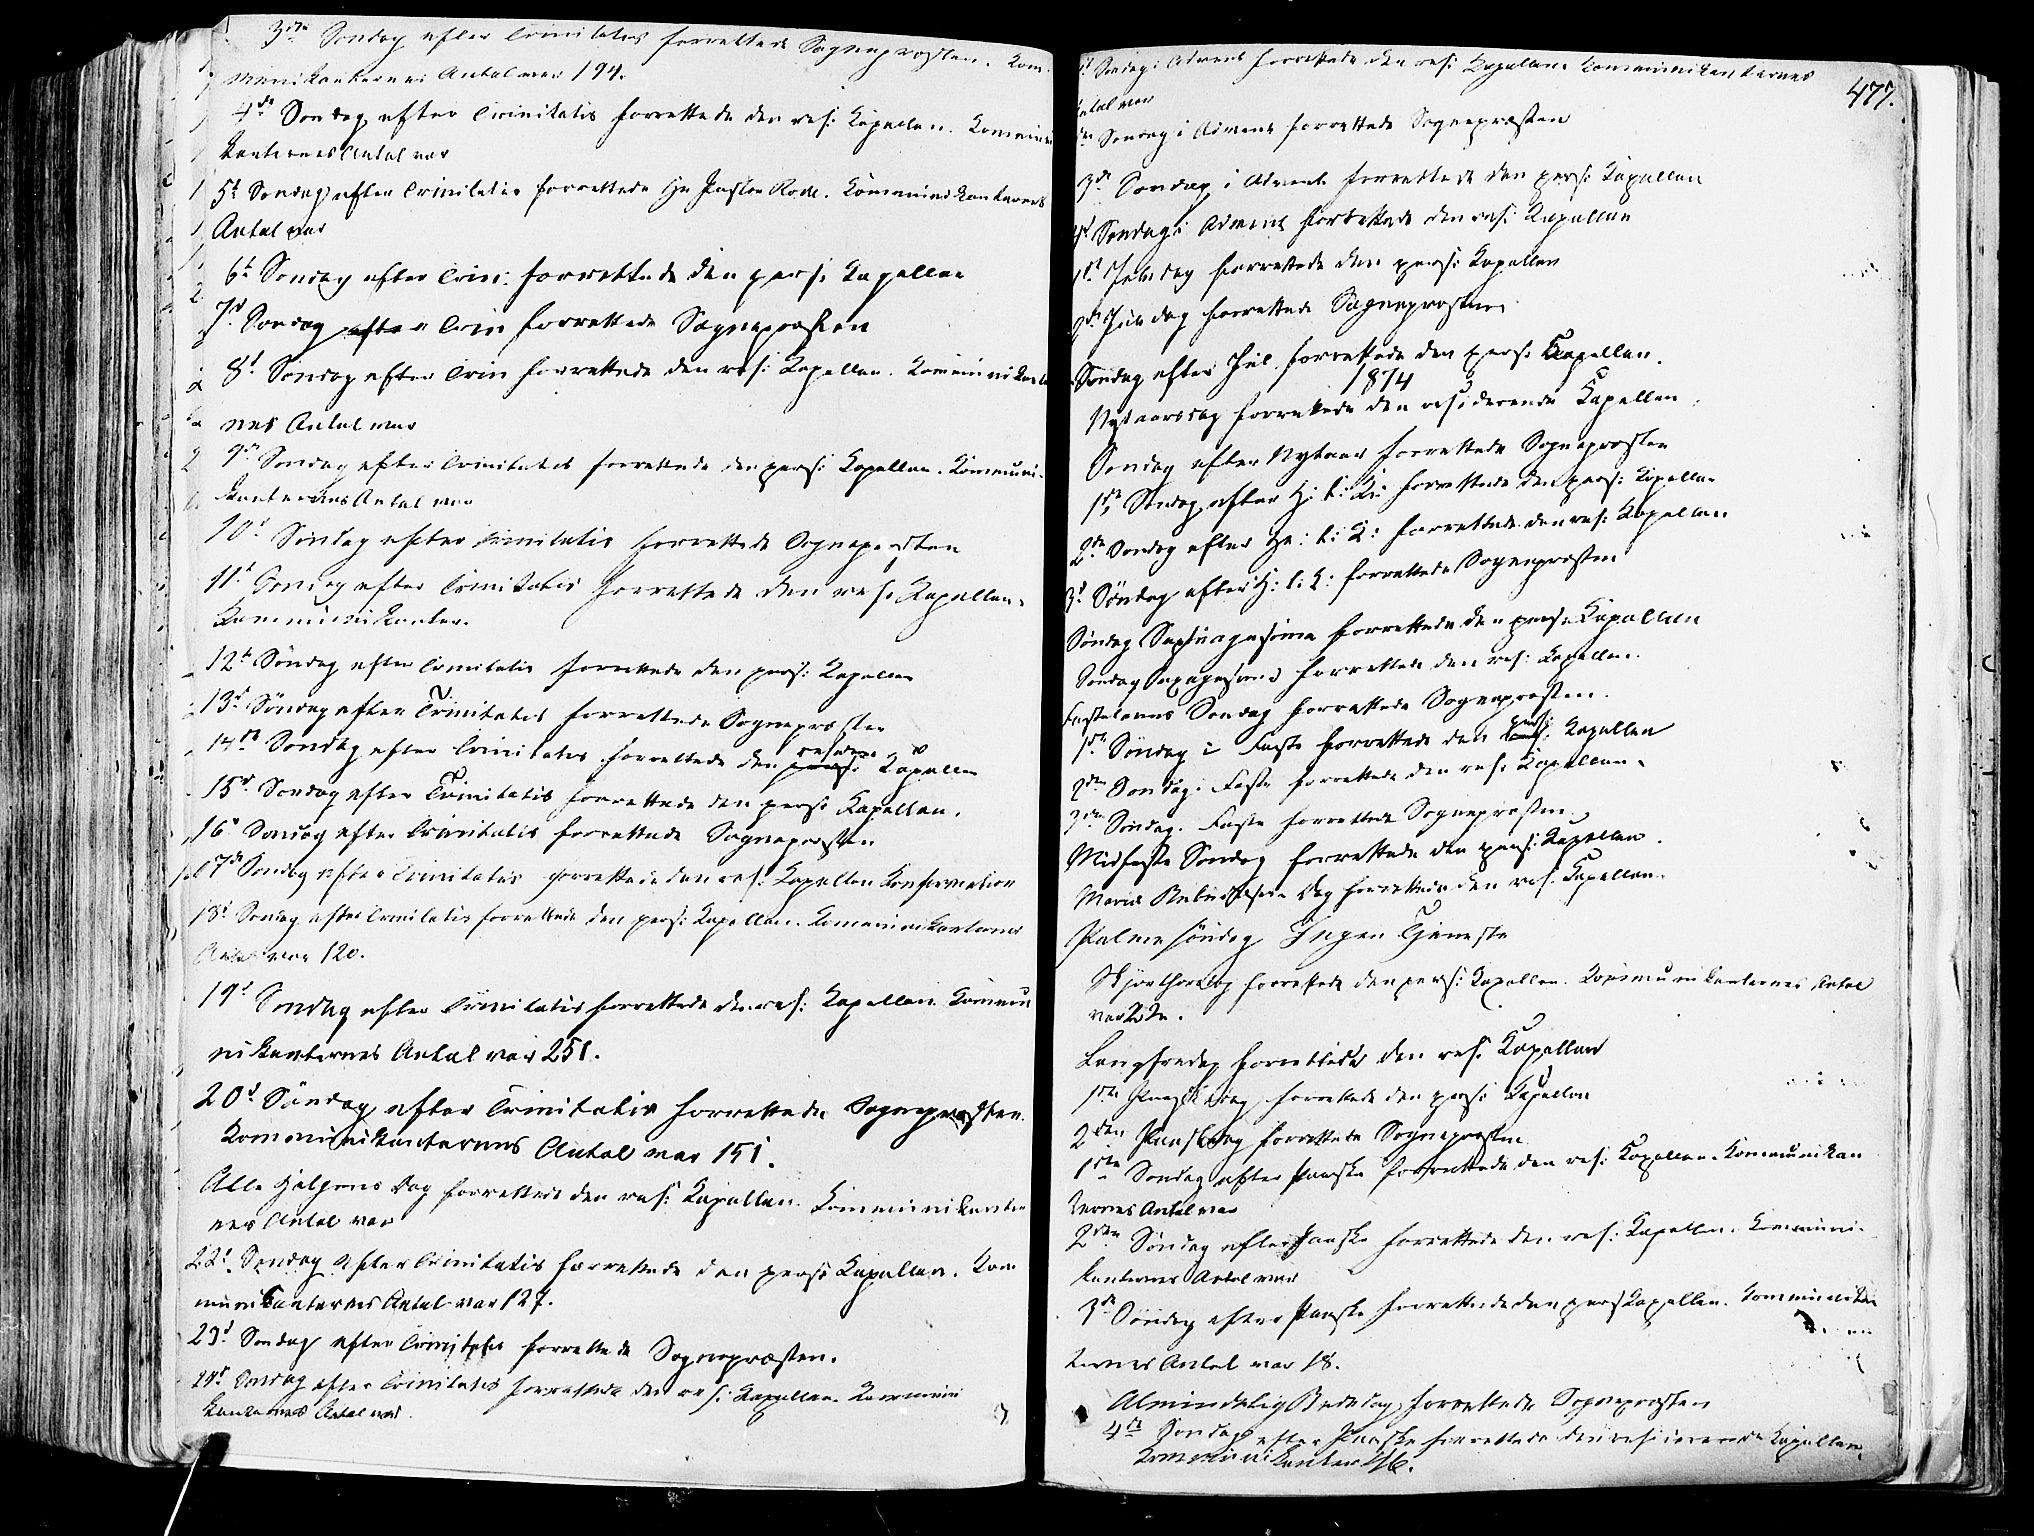 3die Søndag efter Trinitatis forrettede Sognepræsten. Kom-
munikanternes Antal var 194.
4de Søndag efter Trinitatis forrettede den res: Kapellan. Kommuni
kanternes Antal var
5t Søndag efter Trinitatis forrettede Hr Pastor Rode. Kommunikanternes
Antal var
6t Søndag efter Trin: forrettede den pers: Kapellan
7d Søndag efter Trin forrettede Sognepræsten
8d Søndag efter Trin forrettede den res: Kapellan. Kommunikanter
nes Antal var
9de Søndag efter Trinitatis forrettede den pers: Kapellan. Kommuni-
kanternes Antal var
10d Søndag efter Trinitatis forrettede Sognepræsten
11t Søndag efter Trinitatis forrettede den res: Kapellan.
Kommunikanter.
12t Søndag efter Trinitatis forrettede den pers: Kapellan
13d Søndag efter Trinitatis forrettede Sognepræsten
14de Søndag efter Trinitatis forrettede den pers: Kapellan
15d Søndag efter Trinitatis forrettede den pers: Kapellan.
16d Søndag efter Trinitatis forrettede Sognepræsten
17de Søndag efter Trinitatis forrettede den res: Kapellan Konfirmation
18d Søndag efter Trinitatis forrettede den pers: Kapellan. Kommunikanternes
Antal var 120.
19d Søndag efter Trinitatis forrettede den res: Kapellan. Kommu
nikanternes Antal var 251.
20d Søndag efter Trinitatis forrettede Sognepræsten.
Kommunikanternes Antal var 151.
Alle Helgens Dag forrettede den res: Kapellan. Kommunikanter
nes Antal var
22d Søndag efter Trinitatis forrettede den pers: Kapellan. Kom
munikanternes Antal var 127.
23d Søndag efter Trinitatis forrettede Sognepræsten.
24d Søndag efter Trinitatis forrettede den res: Kapellan. Kommuni
kanternes Antal var.
477.
Søndag i Advent forrettede den res: Kapellan. Kommunikanternes
Antal var
Søndag i Advent forrettede Sognepræsten
3de Søndag i Advent forrettede den pers: Kapellan
4d Søndag i Advent forrettede den res: Kapellan
1ste Juledag forrettede den pers: Kapellan
2den Juledag forrettede Sognepræsten
Søndag efter Jul forrettede den pers: Kapellan.
1874
Nytaarsdag forrettede den residerende Kapellan.
Søndag efter Nytaar forrettede Sognepræsten
1ste Søndag efter H: t: K: forrettede den pers: Kapellan
2den Søndag efter He: t: K: forrettede den res: Kapellan
3d Søndag efter H: t: K: forrettede Sognepræsten
Søndag Septuagesima forrettede den pers: Kapellan
Søndag Sexagesima forrettede den res: Kapellan.
Fastelavns Søndag forrettede Sognepræsten.
1ste Søndag i Faste forrettede den pers: Kapellan
2den Søndag i Faste forrettede den res: Kapellan.
3die Søndag i Faste forrettede Sognepræsten
Midfaste Søndag forrettede den pers: Kapellan.
Mariæ Bebudelses Dag forrettede den res: Kapellan.
Palmesøndag Ingen Tjeneste
Skjærthorsdag forrettede den pers: Kapellan. Kommunikanternes Antal
var
Langfredag forrettede den res: Kapellan
1ste Paaskedag forrettede den pers: Kapellan
2den Paaskedag forrettede Sognepræsten
1ste Søndag efter Paaske forrettede den res: Kapellan. Kommunikan
ternes Antal var
2den Søndag efter Paaske forrettede den res: Kapellan. Kommuni-
kanternes Antal var
3de Søndag efter Paaske forrettede den pers Kapellan. Kommunikan
ternes Antal var 18.
Almindelig Bededag forrettede Sognepræsten
4de Søndag efter Paaske forrettede den residerende Kapellan.
Kommunikanter